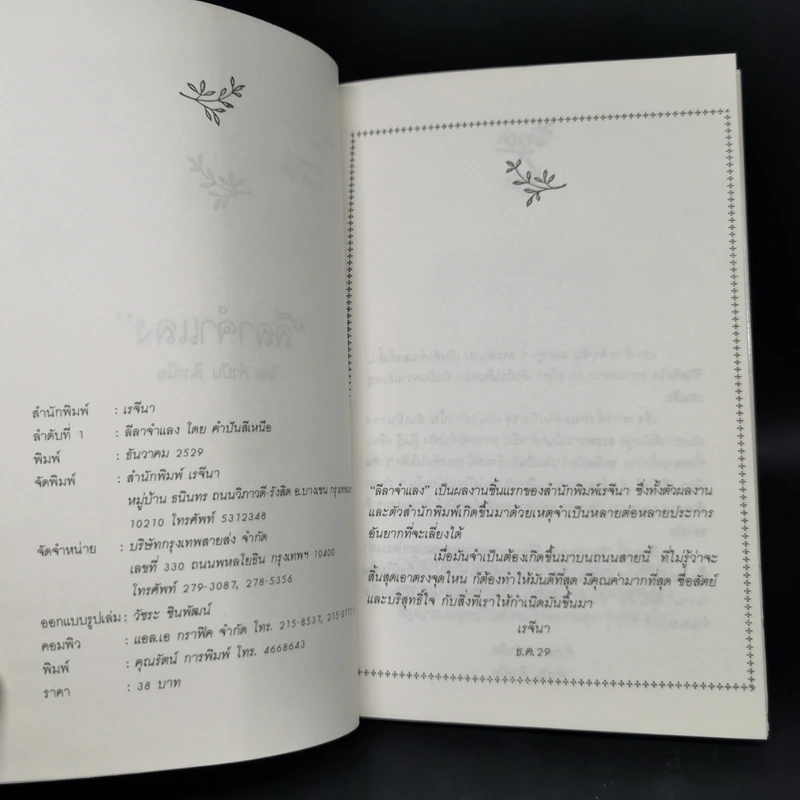 สำนักพิมพ์ : เรจีนา
ลำดับที่ 1 : ลีลาจำแลง โดย คำปันสีเหนือ
พิมพ์ : ธันวาคม 2529
จัดพิมพ์ : สำนักพิมพ์ เรจีนา
หมู่บ้าน ธนินทร ถนนวิภาวดี-รังสิต อ.บางเขน กรุงเทพฯ
10210 โทรศัพท์ 5312348
จัดจำหน่าย : บริษัทกรุงเทพสายส่ง จำกัด
เลขที่ 330 ถนนพหลโยธิน กรุงเทพฯ 10400
โทรศัพท์ 279-3087, 278-5356
ออกแบบรูปเล่ม : วัชระ ชินพัฒน์
คอมพิว : แอล.เอ กราฟิค จำกัด โทร. 215-8537,
พิมพ์ : คุณรัตน์ การพิมพ์ โทร. 4668643
ราคา : 38 บาท
"ลีลาจำแลง" เป็นผลงานชิ้นแรกของสำนักพิมพ์เรจีนา ซึ่งทั้งตัวผลงาน
และตัวสำนักพิมพ์เกิดขึ้นมาด้วยเหตุจำเป็นหลายต่อหลายประการ
อันยากที่จะเลี่ยงได้
เมื่อมันจำเป็นต้องเกิดขึ้นมาบนถนนสายนี้ ที่ไม่รู้ว่าจะ
สิ้นสุดเอาตรงจุดไหน ก็ต้องทำให้มันดีที่สุด มีคุณค่ามากที่สุด ซื่อสัตย์
และบริสุทธิ์ใจ กับสิ่งที่เราให้กำเนิดมันขึ้นมา
เรจีนา
ธ.ค.29